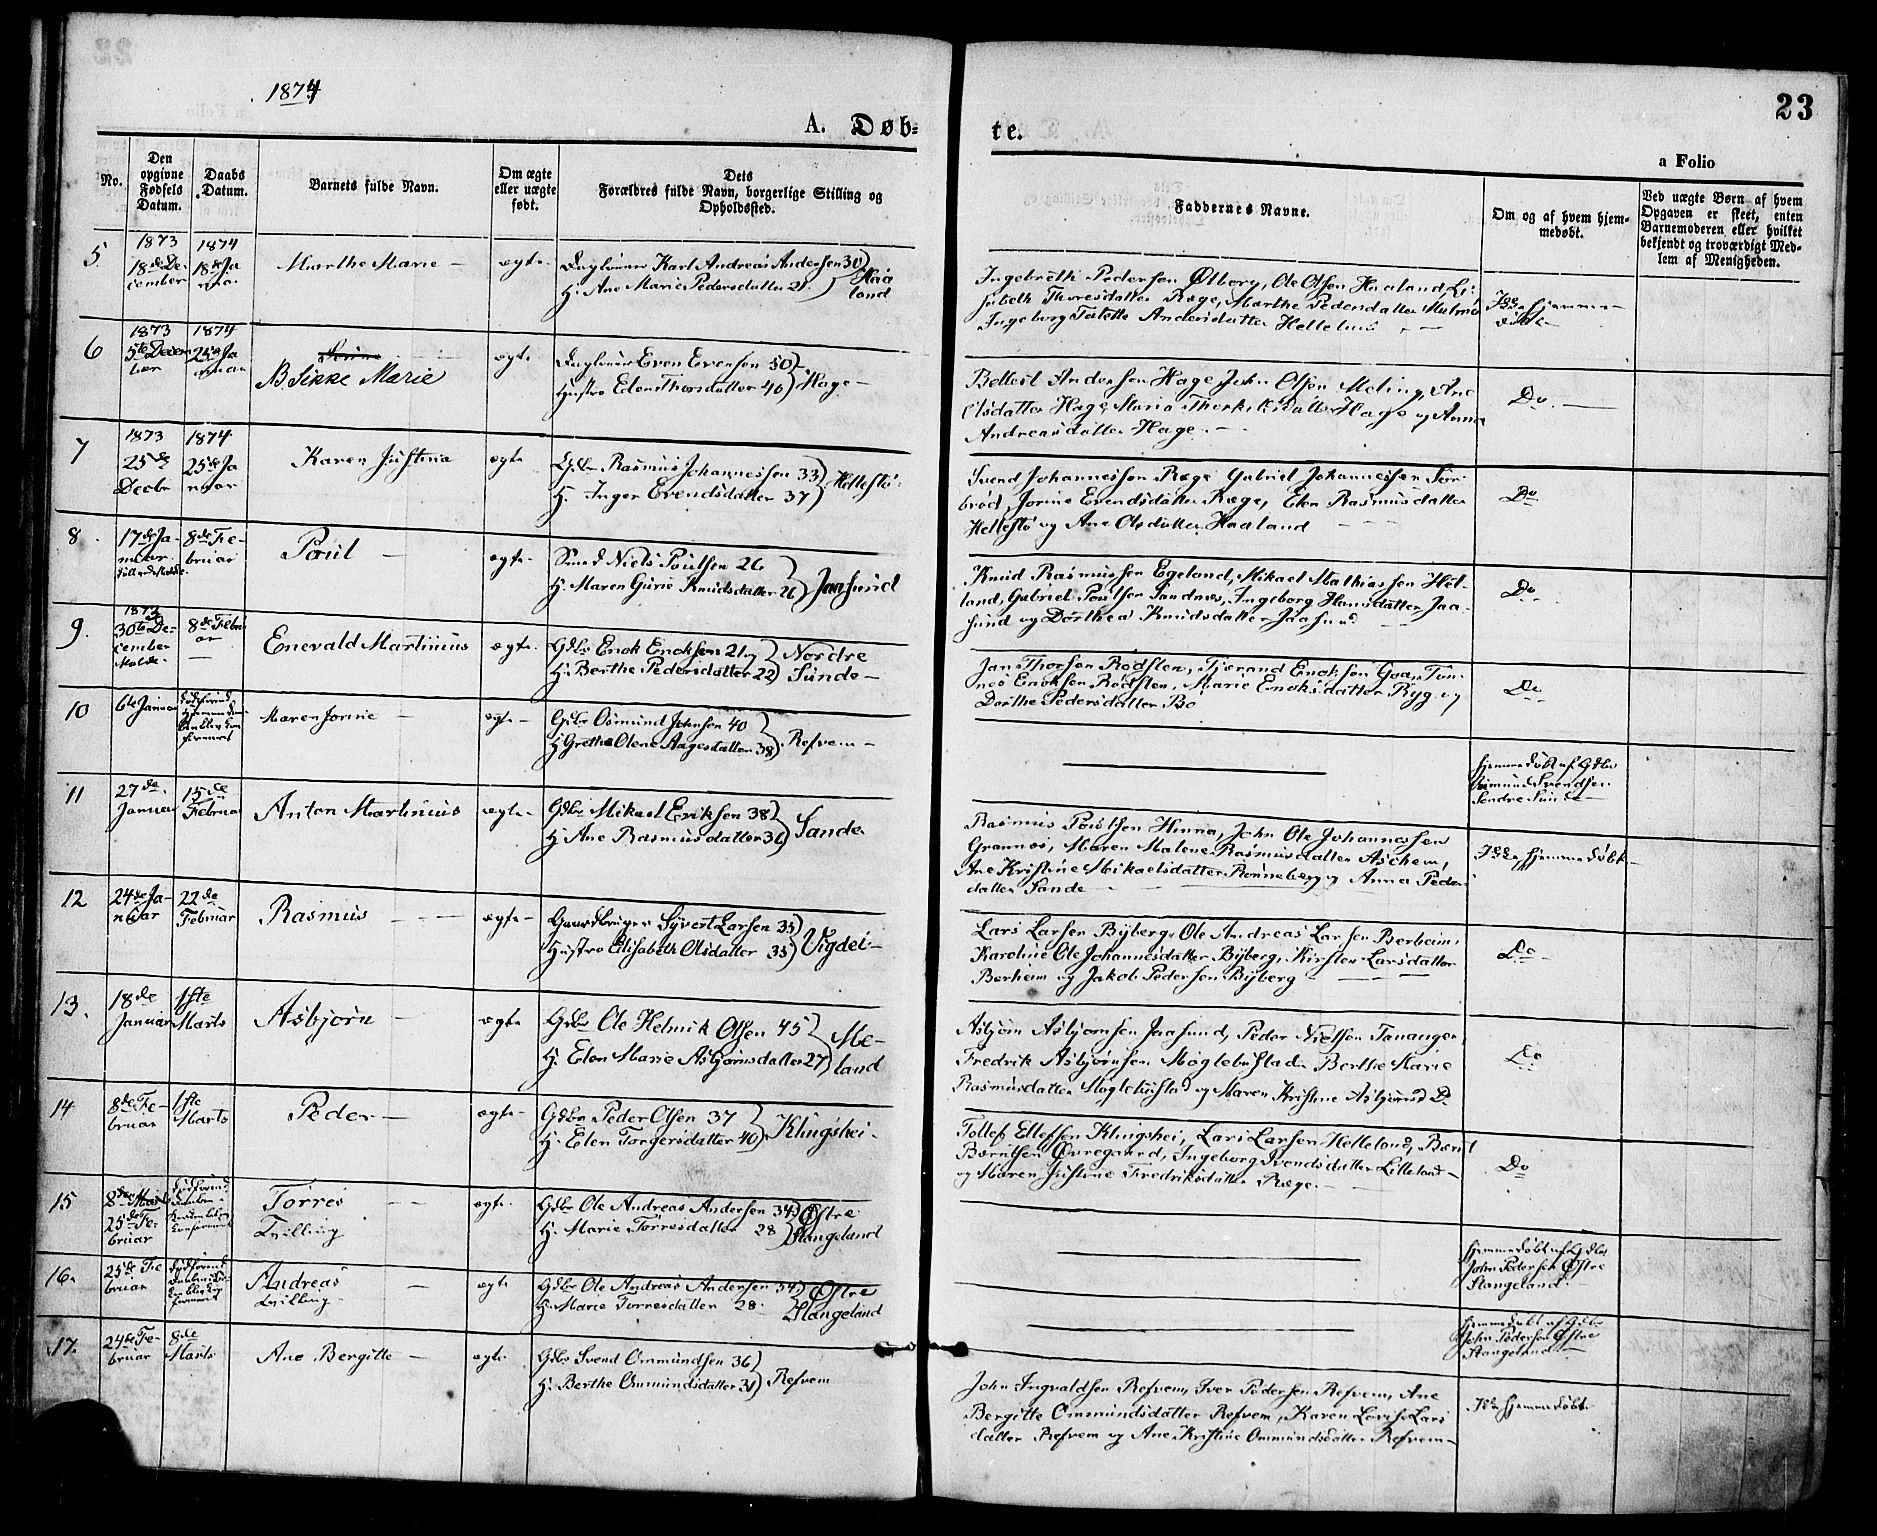 1874
A. Døb-
te.
23
a Folio
No.
Den opgivne Fødsels Datum.
Daabs Datum.
Barnets fulde Navn.
Om ægte eller uægte født.
Dets Forældres fulde Navn, borgerlige Stilling og Opholdssted.
Faddernes Navne.
Om og af hvem hjemmedøbt.
Ved uægte Børn af hvem Opgaven er skeet, enten Barnemoderen eller hvilket bekjendt og troværdigt Medlem af Menigheden.
5
1873
18de De-
cember
1874
18de Ja
Marthe Marie
ægte
Karl Andreas Andersen 30
H. Ane Marie Pedersdatter
Haa
land
Ingebreth Pedersen Ølberg, Ole Olsen Haaland, Li
sabeth Thoresdatter Ræge, Marthe Pedersdatter
Ingeborg Andersdatter
Ikke hjemme
døbt
6
1873
5te Decem
ber
1874
25de Ja
nuar
Sikke Marie
ægte
Even Evensen 50
Hustro Elen Thorsdatter 40
Hage
Andersen Hage, John Olsen Meling, Ane
Olsdatter Hage, Maria Hage og Anna
Andreasdatter Hage
Do
7
1873
25de
Decbr
1874
25de Ja
nuar
Karen Justina
ægte
Gdbr Rasmus Johannessen 33
H. Inger Evendsdatter 37
Hellestø
Svend Johannessen Ræge Gabriel Johannessen
Jorine Evendsdatter Ræge, Elen Rasmusdatter
Hellestø og Ane Olsdatter Haaland
Do
8
17de Ja-
nuar
8de Fe-
bruar
Poul
ægte
Niels Poulsen 26
H. Maren Gurie Knudsdatter 26
Jaasund
Knud Rasmussen Egeland, Mikael Mathiassen Hel-
land, Gabriel Poulsen Sandnes, Ingeborg Hansdatter Jaa-
sund og Dorthea Knudsdatter Jaasund
Do
9.
1873
30te De-
cember
Molde
8de Febru
ar
Enevald Martinius
ægte
Gdbr Enok Enoksen 21
H. Berthe Pedersdatter 22
Nordre
Sunde
Jan Thorsen Rødsten, Tjerand Enoksen Goa, Tøn-
nes Enoksen Rødsten, Marie Enoksdatter Ryg og
Dorthe Pedersdatter Bø
Do
10
6te Januar
Maren Jorine
ægte
Gdbr Osmund Johnsen 40
H. Grethe Olene Aagesdatter 38
Refvem
Hjemmedøbt af Gdbr
Svendsen
Søndre Sunde
11
27de
Januar
15de
Februar
Anton Martinius
ægte
Gdbr Mikael Eriksen 38
H. Ane Rasmusdatter 36
Sande
Rasmus Poulsen Hinna, John Ole Johannessen
Grannes, Maren Malene Rasmusdatter Aschem,
Ane Kristine Mikaelsdatter Rønneberg og Anna Peders
datter Sande
Ikke hjemmedøbt
12
24de Ja-
nuar
22de
Februar
Rasmus
ægte
Gaardbruger Syvert Larsen 35
Hustro Elisabeth Olsdatter 35
Vigdel
Lars Larsen Byberg, Ole Andreas Larsen Berheim,
Karoline Ole Johannesdatter Byberg, Kirsten Larsdatter
Berheim og Jakob Pedersen Byberg
Do
13.
18de
Januar
1ste
Marts
Asbjørn
ægte
Gdbr Ole Helmik Olsen 45
H. Elen Marie Asbjørnsdatter 27
Me-
land
Asbjørn Asbjørnsen Jaasund, Peder Nielsen Tananger,
Fredrik Asbjørnsen Møglebustad, Berthe Marie
Rasmusdatter Møglebustad og Maren Kristine Asbjørnsd Do
Do
14
8de Fe-
bruar
1ste
Marts
Peder
ægte
Gdbr Peder Olsen 37
H. Elen Torgersdatter 40
Klingshei
Tollef Ellefsen Klingshei, Lars Larsen Helleland, Bærnt
Bærntsen Øvregaard, Ingeborg Svendsdatter Lilleland
og Maren Justine Fredriksdatter Ræge
Do
15
25de Fe-
bruar
Torres
Tvilling
ægte
Gdbr Ole Andreas Andersen 34
H. Marie Torresdatter 28
Østre
Stangeland
Hjemmedøbt af Gdbr
John Pedersen Østre
Stangeland
16.
25de Fe
bruar
Andreas
Tvilling
ægte
Gdbr Ole Andreas Andersen 34
H. Marie Torresdatter 28
Østre
Stangeland
Hjemmedøbt af Gdbr
John Pedersen Østre
Stangeland
17.
24de Fe-
bruar
8de
Marts
Ane Bergitte
ægte
Gdbr Svend Ommundsen 36
H. Berthe Ommundsdatter 31
Refvem
John Ingvaldsen Refvem, Iver Pedersen Refvem, Ane
Bergitte Ommundsdatter Refvem, Karen Lovise Lars
datter Refvem og Ane Kristine Ommundsdatter Refvem
Ikke hjemmedøbt